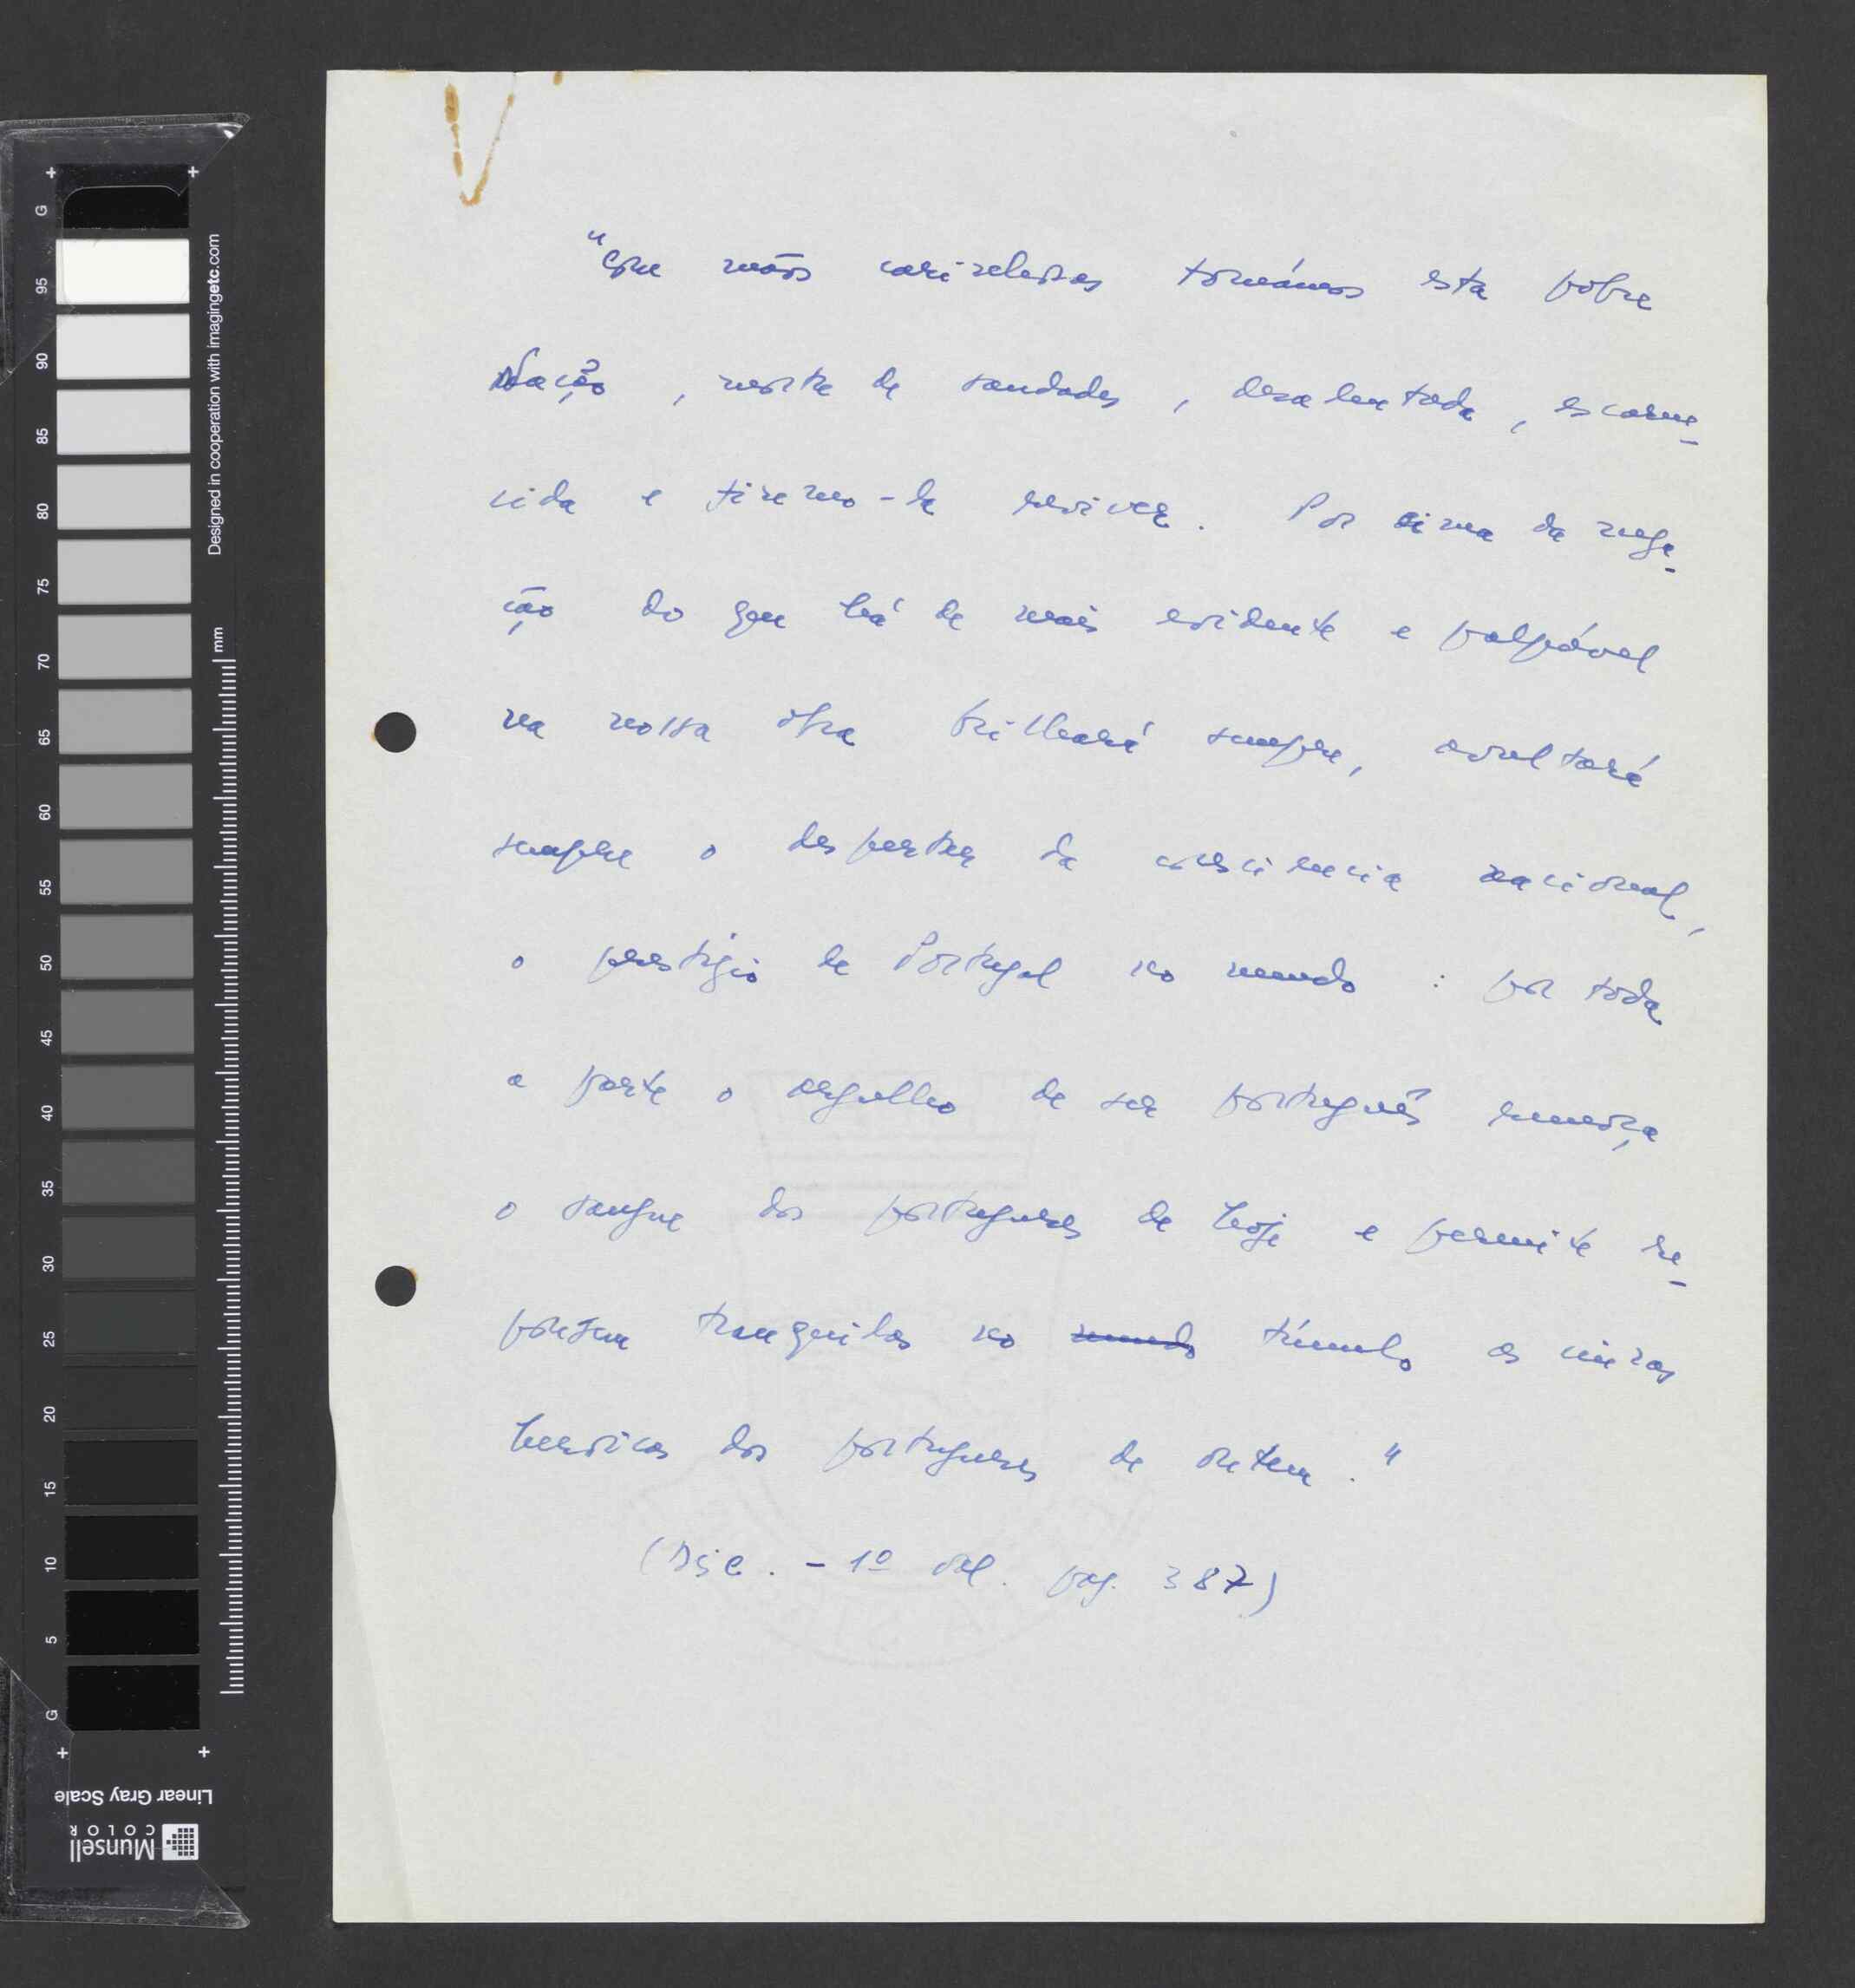 "Com mãos carinhosas tomámos esta pobre
Nação, morta de saudades, desalentada, escarne-
cida e fizemo-la reviver. Por cima da nega-
ção do que há de mais evidente e palpável
na nossa obra brilhará sempre, avultará
sempre o despertar da consciencia nacional,
o prestigio de Portugal no mundo: por toda
a parte o orgulho de ser português remoça
o sangue dos portugueses de hoje e permite re-
pousem tranquilas no mundo túmulo as cinzas
heroicas dos portugueses de ontem."
(Disc. - 1º vol. pag. 387)
Designed in cooperation with imagingetc.com
mm
G 95 90 85 80 75 70 65 60 55 50 45 40 35 30 25 20 15 10 5 G
Linear Gray Scale
Munsell
COLOR